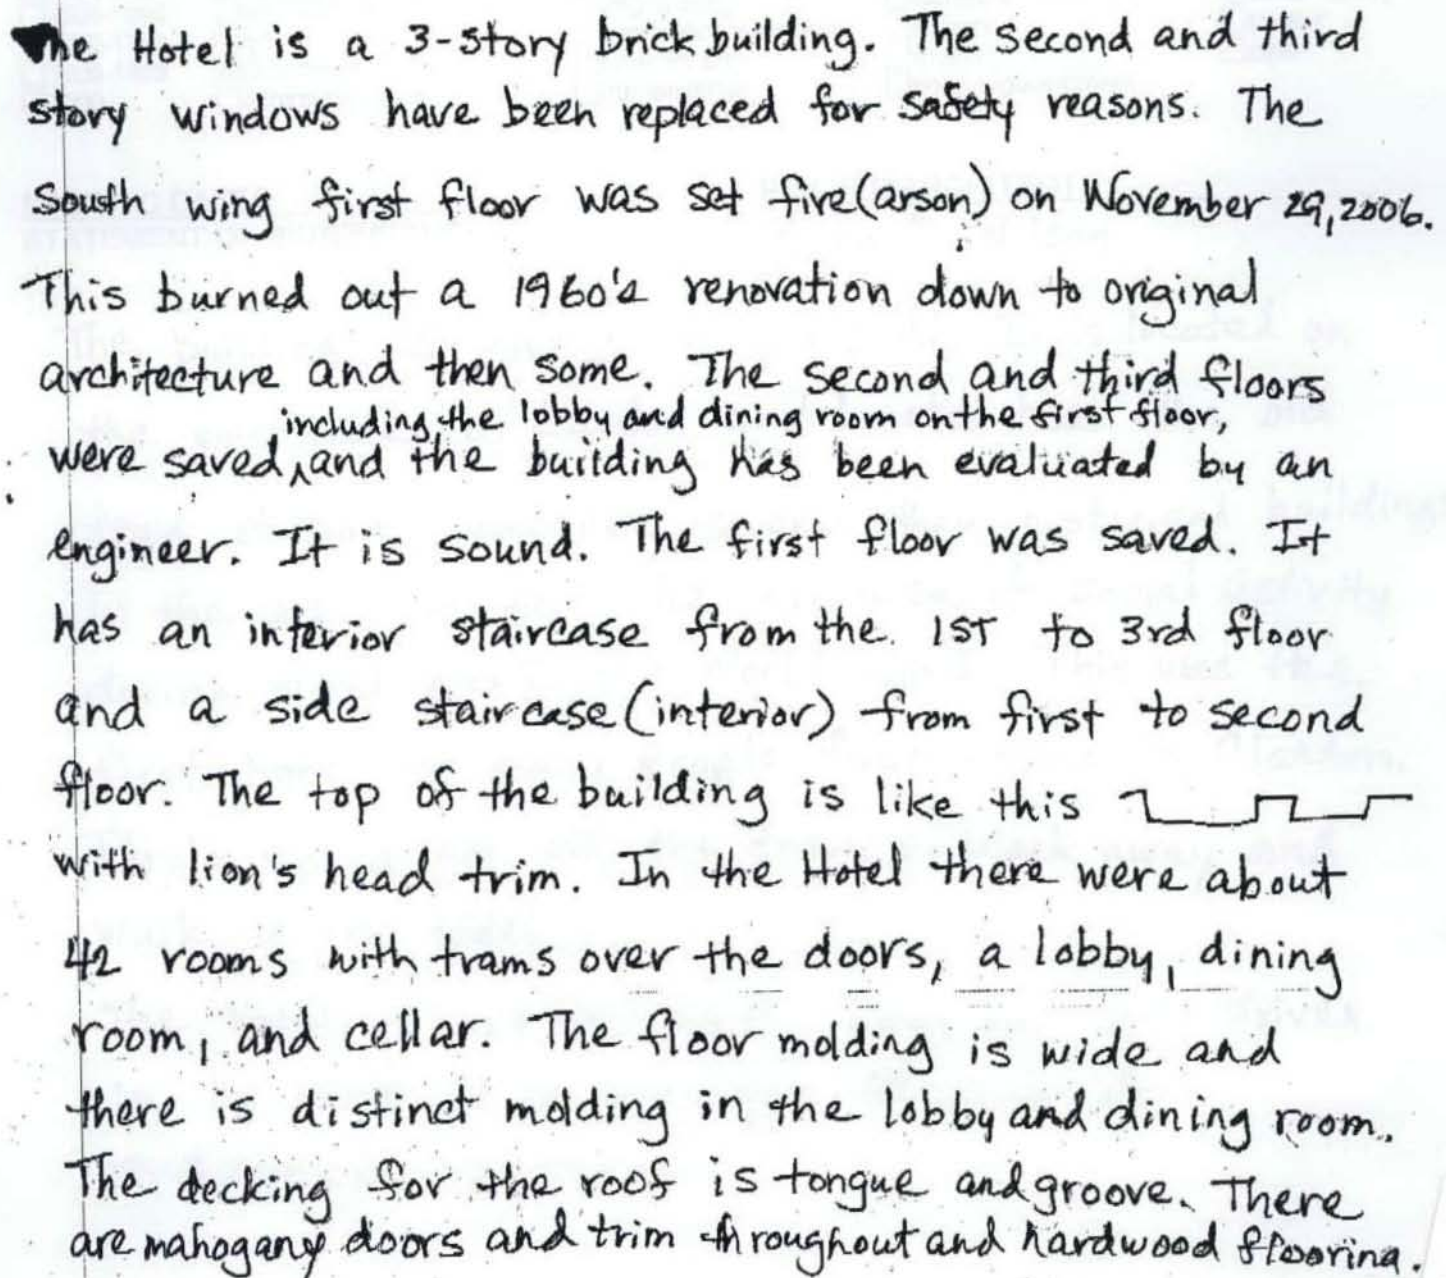 The Hotel is a 3-story brick building. The second and third
story windows have been replaced for safety reasons. The
South wing first floor was set fire (arson) on November 29, 2006.
This burned out a 1960's renovation down to original
architecture and then some. The second and third floors
including the lobby and dining room on the first floor,
were saved, ^ and the building has been evaluated by an
engineer. It is sound. The first floor was saved. It
has an interior staircase from the 1ST to 3rd floor
and a side staircase (interior) from first to second
floor. The top of the building is like this
with lion's head trim. In the Hotel there were about
42 rooms with trams over the doors, a lobby, dining
room, and cellar. The floor molding is wide and
there is distinct molding in the lobby and dining room.
The decking for the roof is tongue and groove. There
are mahogany doors and trim throughout and hardwood flooring.